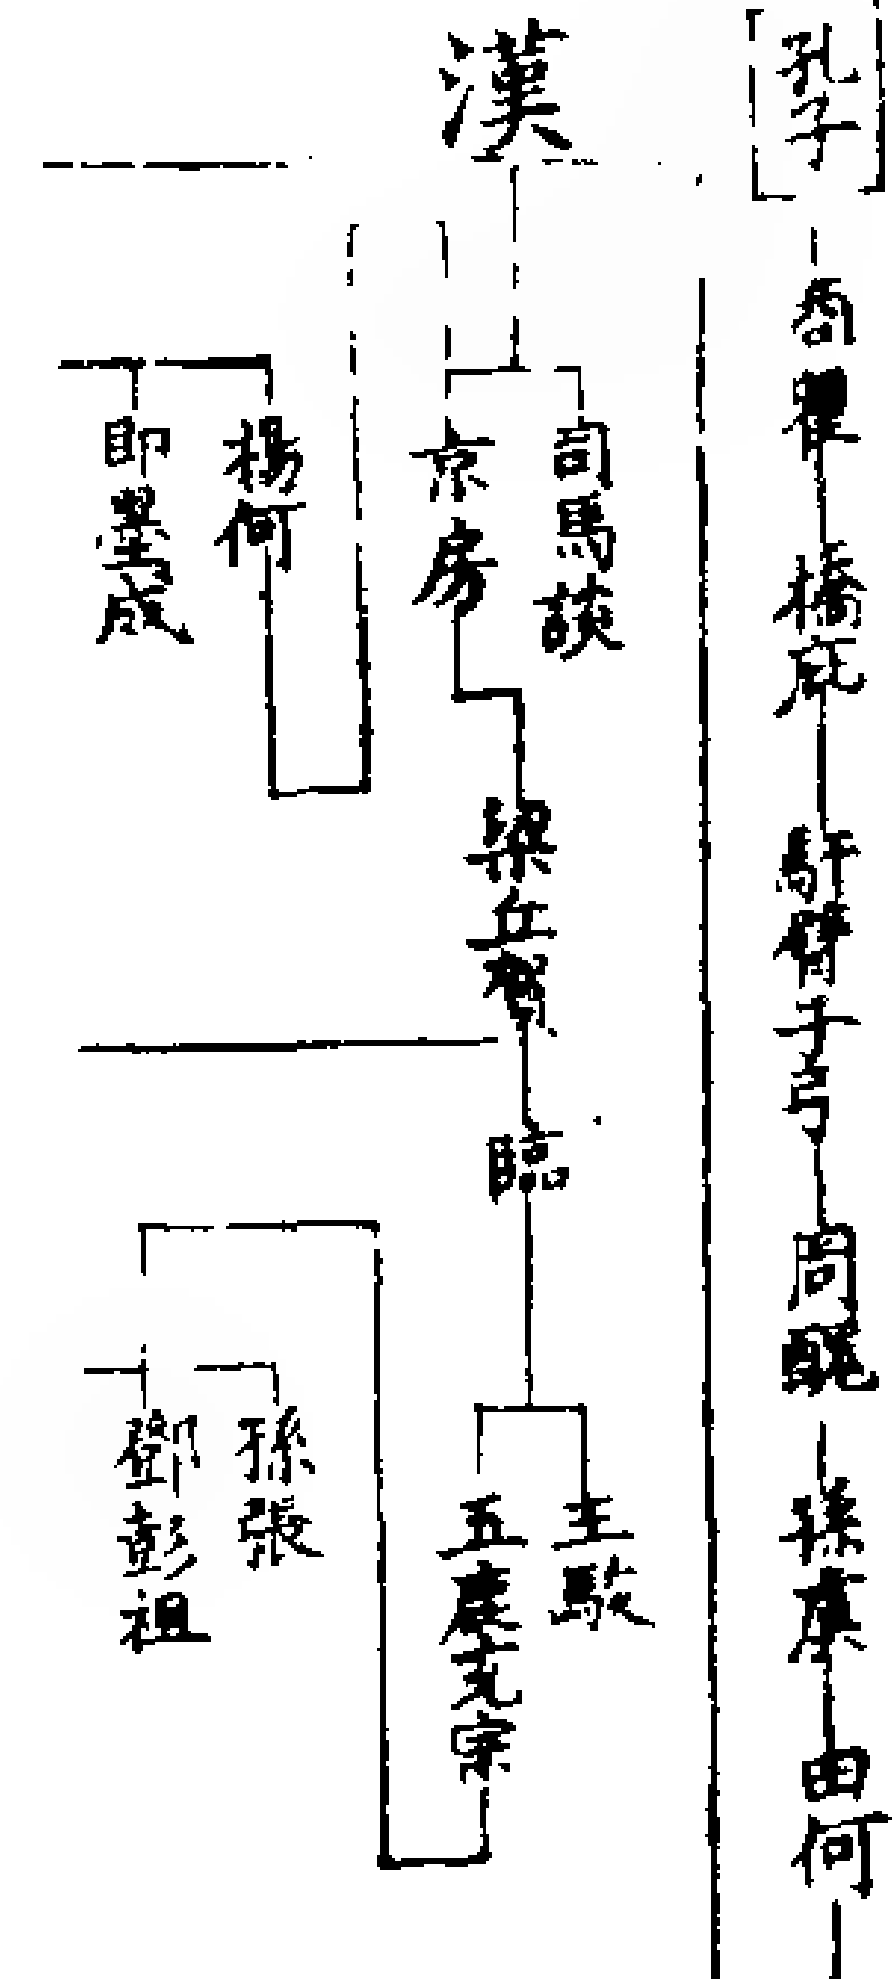 孔子
商瞿
橋庇
馯臂子弓
周醜
孫虞
田何
漢
司馬談
京房
梁丘賀
臨
王駿
五鹿充宗
楊何
即墨成
孫張
鄧彭祖